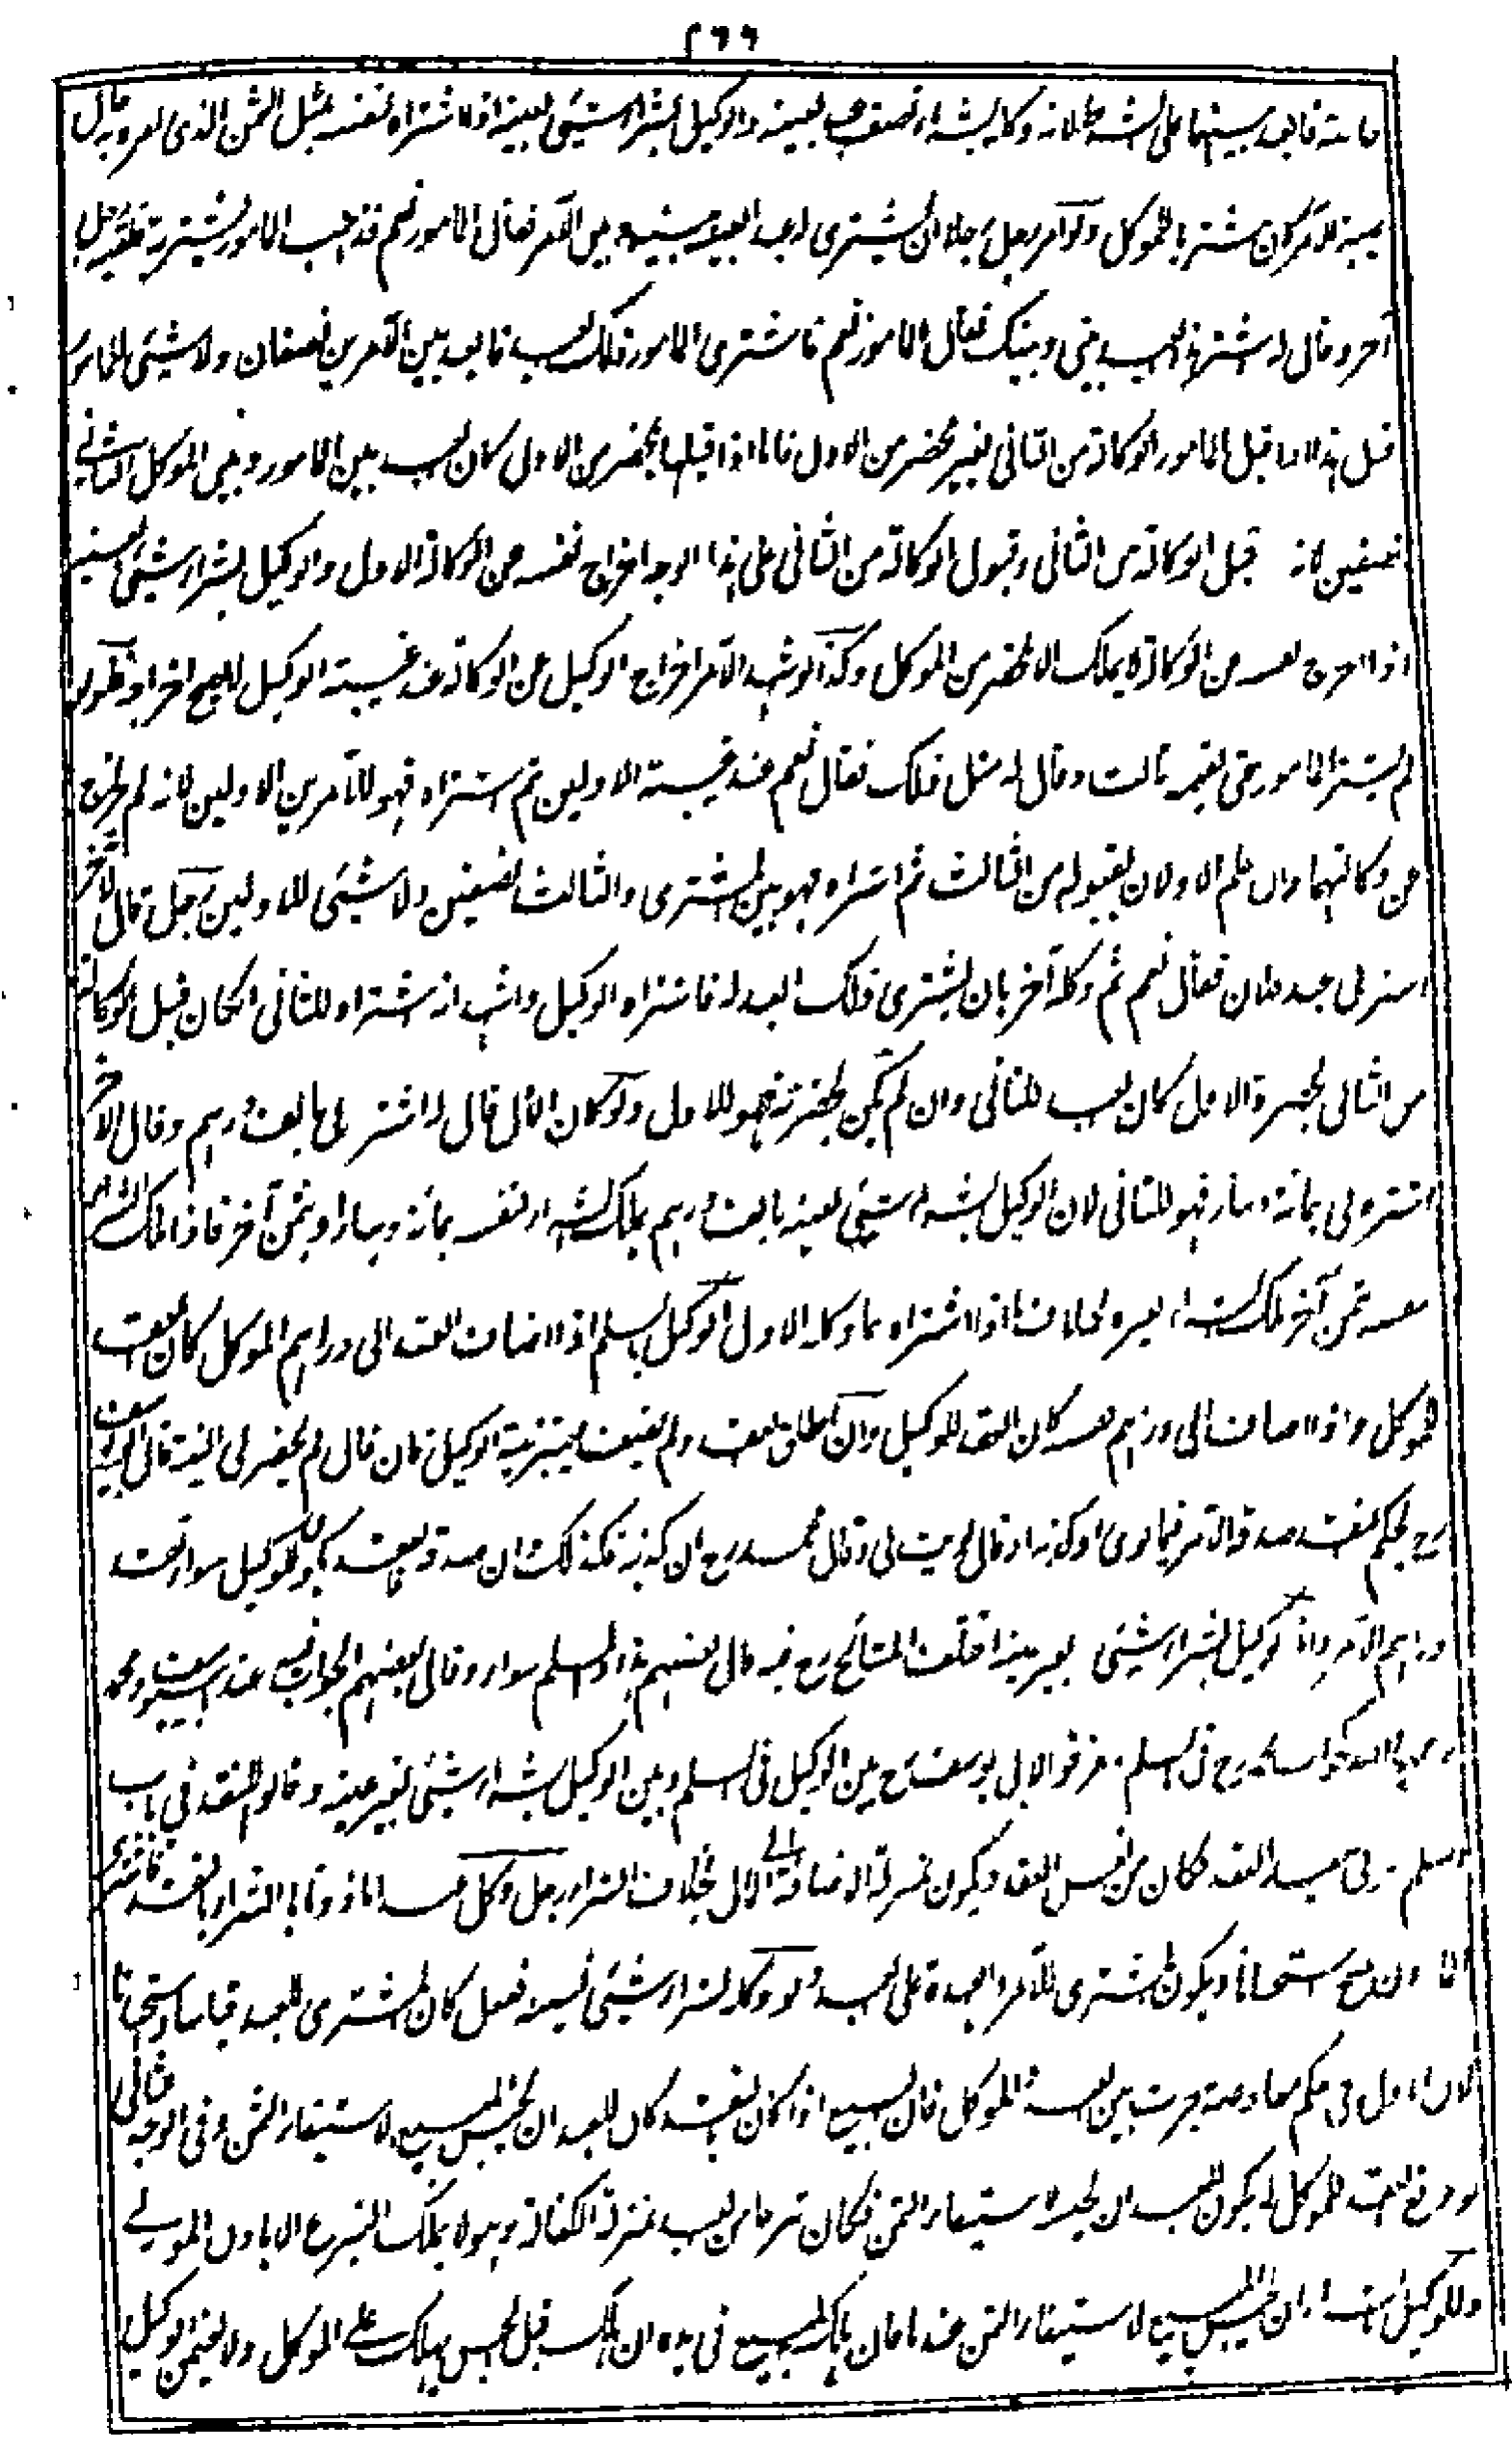 ٢٦٦
فالعبد بينهما على الشرط لانه وكله بشراء نصف بعينه والوكيل بشراء شيئ بعينه اذا اشتراه لنفسه بمثل الثمن الذى امره به قال
كان مشتريا للموكل ولو امر رجل رجلا ان يشترى له عبدا بعينه بينه وبين الآمر فقال المامور نعم فذهب المامور يشتريه فلقيه رجل
آخر وقال له اشتر هذا العبد بينى وبينك فقال المامور نعم فاشترى المامور ذلك العبد فالعبد بين الآمرين نصفان ولا شيئ للمامور
قبل هذا اذا قبل المامور الوكالة من الثانى بغير محضر من الاول فاما اذا قبلها بمحضر من الاول كان العبد بين المامور وبين الموكل الثانى
نصفين لانه قبل الوكالة من الثانى وقبول الوكالة من الثانى على هذا الوجه اخراج نفسه عن الوكالة الاولى والوكيل بشراء شيئ بعينه
اذا اخرج نفسه من الوكالة لا يملك الا بمحضر من الموكل وكذا لو اشهد الآمر اخراج الوكيل عن الوكالة عند غيبة الوكيل لا يصح اخراجه ولو
لم يشتر المامور حتى لقيه ثالث وقال له مثل ذلك فقال نعم عند غيبة الاولين ثم اشتراه فهو للآمرين الاولين لانه لم يخرج
عن وكالتهما وان علم الاولان بقبوله من الثالث ثم اشتراه فهو بين المشترى والثالث نصفين ولا شيئ للاولين رجل قال لآخر
اشتر لى عبد فلان فقال نعم ثم وكله آخر بان يشترى ذلك العبد له فاشتراه الوكيل واشهد انه اشتراه للثانى ان كان قبل الوكالة
من الثانى بحضرة الاول كان العبد للثانى وان لم يكن بحضرته فهو للاول ولو كان الاول قال له اشتر لى بالف درهم وقال الآخر
اشتره لى بمائة دينار فهو للثانى لان الوكيل بشراء شيئ بعينه بالف درهم يملك الشراء لنفسه بمائة دينار او بثمن آخر فاذا ملك الشراء
لنفسه بثمن آخر ملك الشراء لغيره بخلاف ما اذا اشتراه بما وكله الاول الوكيل بالسلم اذا اضاف العقد الى دراهم الموكل كان العقد
للموكل واذا اضاف الى دراهم نفسه كان العقد للوكيل وان اطلق العقد ولم يضف يعتبر نية الوكيل فان قال لم يحضر لى النية قال ابو يوسف
رح يحكم النقد صدقه الآمر فيما نوى او كذبه او قال نويت لى وقال محمد رح ان كذبه فكذلك وان صدقه فالعقد يكون للوكيل سواء نقد
دراهم الآمر واما الوكيل بشراء شيئ بغير عينه اختلف المشائخ رح فيه قال بعضهم هذا والسلم سواء وقال بعضهم الجواب فيه عند ابى يوسف ومحمد
رح فى السلم وفرقوا لابى يوسف رح بين الوكيل فى السلم وبين الوكيل بشراء شيئ بغير عينه وقالوا النقد فى باب
السلم العقد فكان من نفس العقد ويكون بمنزلة الاضافة الى المال بخلاف الشراء رجل وكل عبدا ماذونا بالشراء بالنقد فاشترى
استحسانا ويكون المشترى للآمر والعهدة على العبد ولو وكله بشراء شيئ نسيئة ففعل كان المشترى للعبد قياسا واستحسانا
لان الاول فى حكم معاوضة جرت بين العبد والموكل فان البيع اذا كان بالنقد كان للعبد ان يحبس المبيع لاستيفاء الثمن وفى الوجه الثانى
لو وقع العقد للموكل لا يكون للعبد ان يحبسه لاستيفاء الثمن فكان تبرعا من العبد بمنزلة الكفالة وهو لا يملك التبرع الا باذن المولى
وللوكيل بالشراء ان يحبس المبيع لاستيفاء الثمن عندنا فان هلك المبيع فى يده ان هلك قبل الحبس يهلك على الموكل ولا يضمن الوكيل